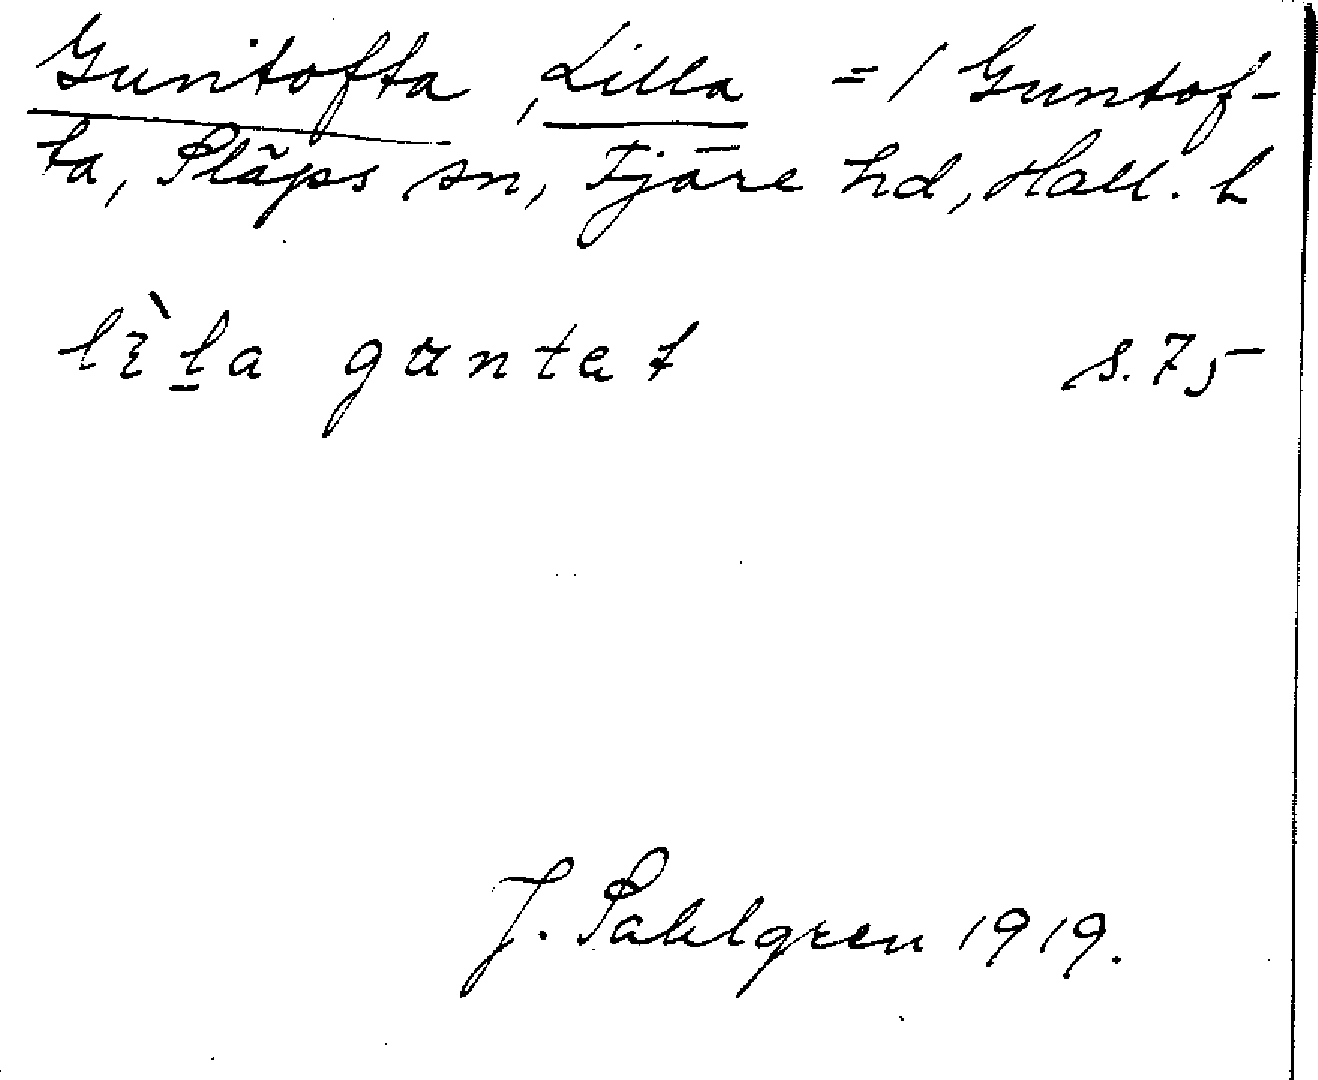 Guntofta, Lilla =/ Guntof-
ta, Släps sn, Fjäre hd, Hall. l
s. 75
J. Sahlgren 1919.